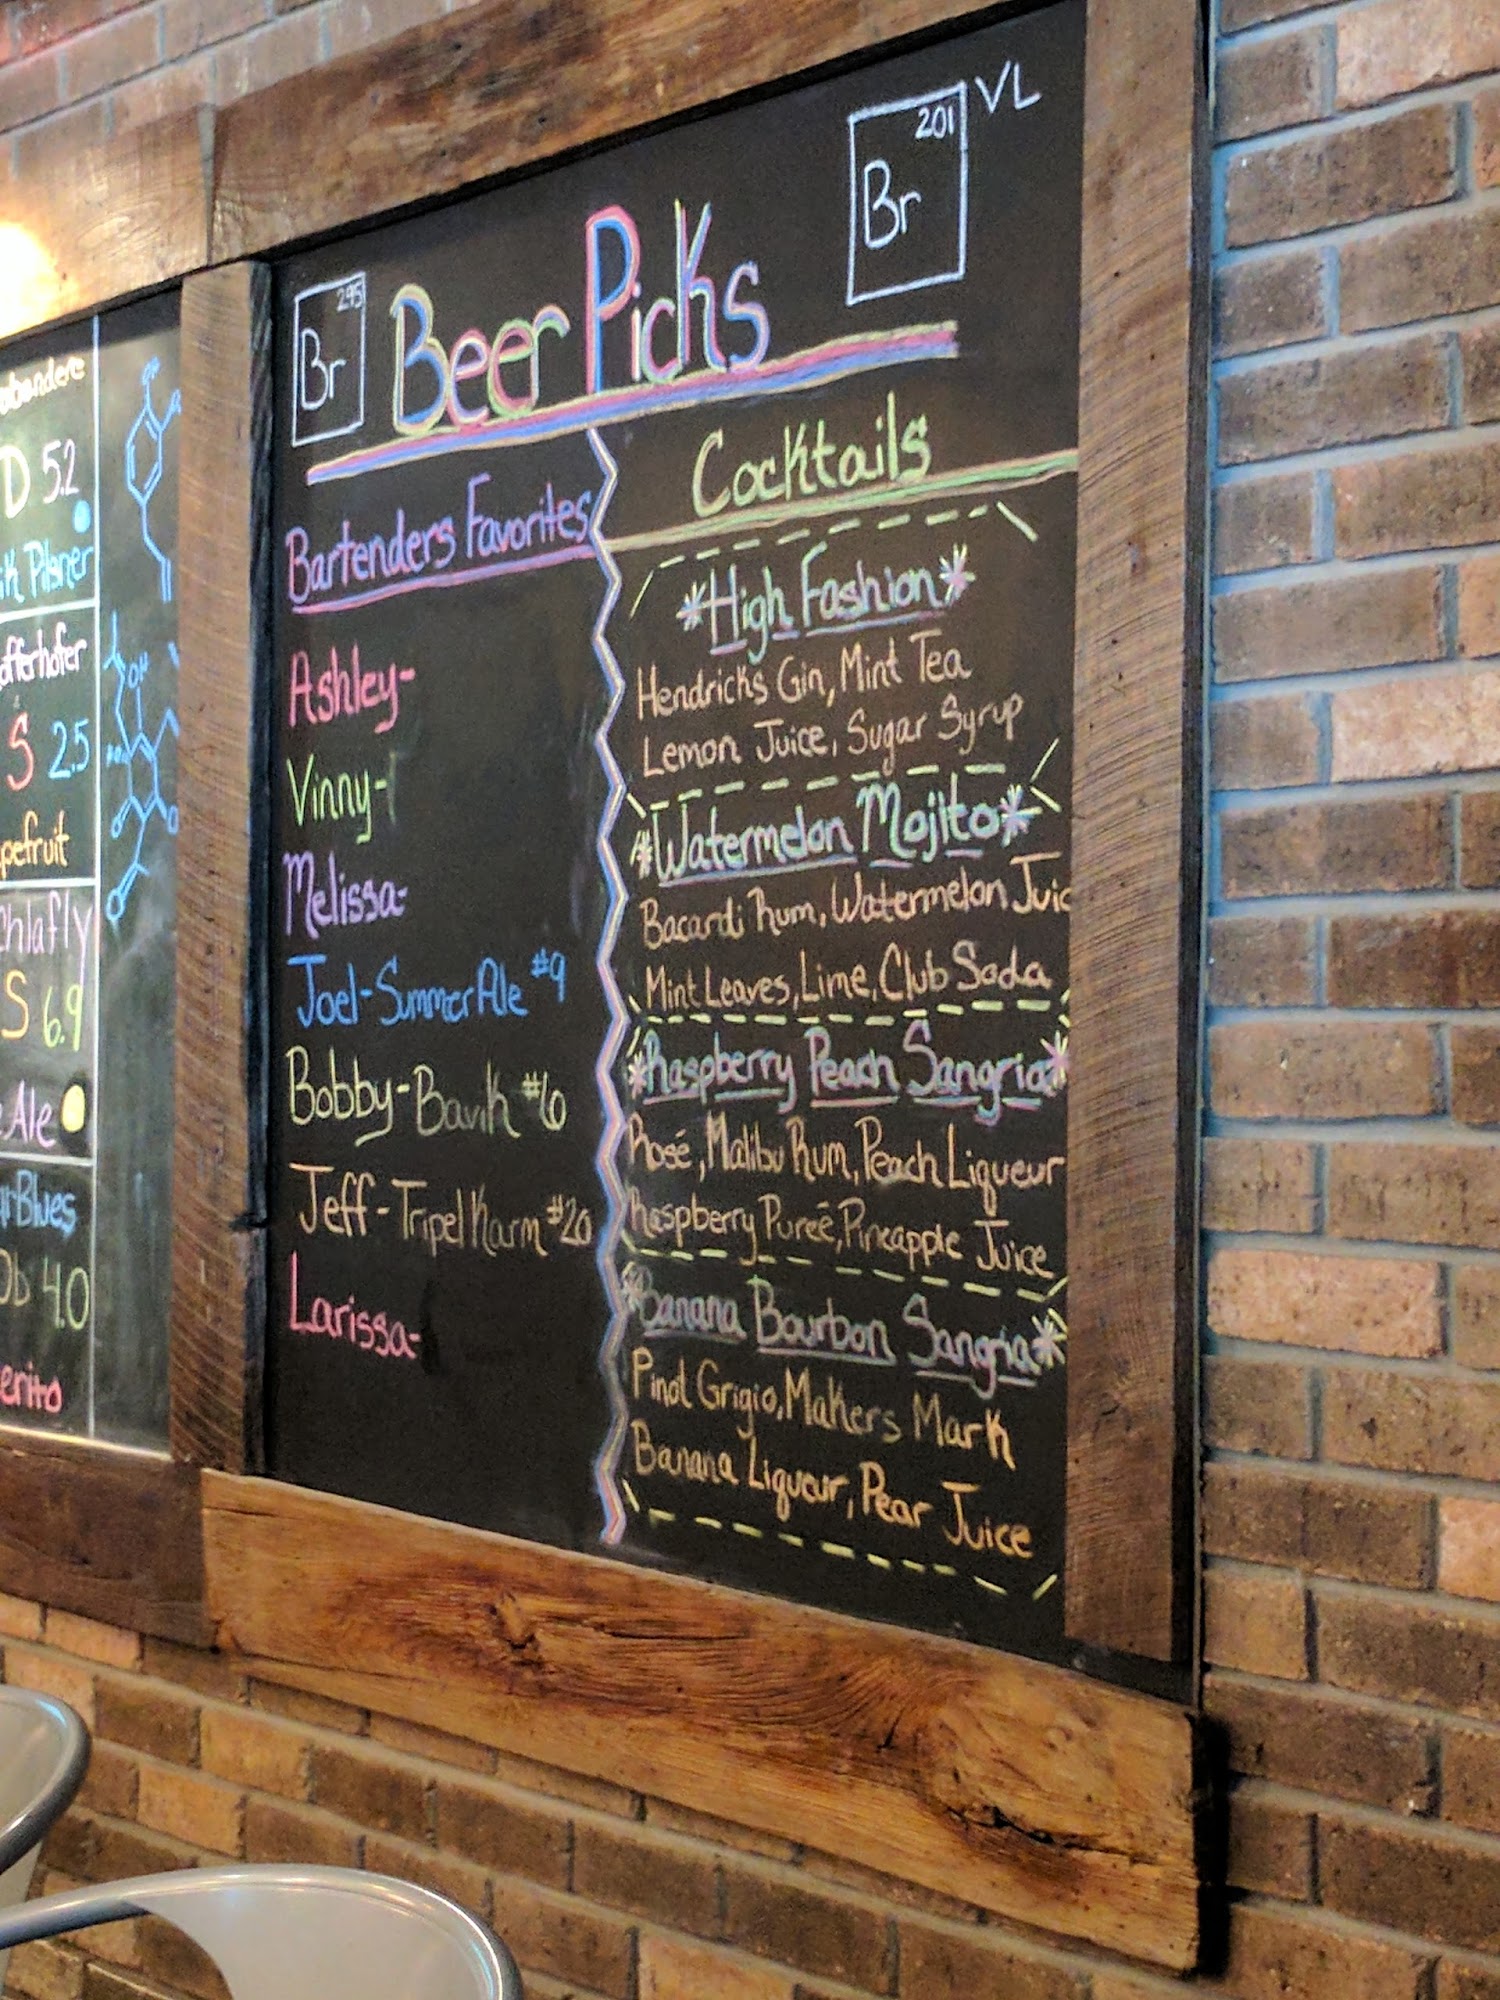 201
VL
Br
295
Br
Beer Picks
Bartenders Favorites
Ashley-
Vinny-
Melissa-
Joel-Summer Ale #9
Bobby-Bavik #6
Jeff-Tripel Karm #20
Larissa-
Cocktails
*High Fashion*
Hendricks Gin, Mint Tea
Lemon Juice, Sugar Syrup
*Watermelon Mojito*
Bacardi Rum, Watermelon Juic
Mint Leaves, Lime, Club Soda
*Raspberry Peach Sangria*
Rosé, Malibu Rum, Peach Liqueur
Raspberry Pureé, Pineapple Juice
*Banana Bourbon Sangria*
Pinot Grigio, Makers Mark
Banana Liqueur, Pear Juice
D 5.2
ik Pilsner
offerhofer
S 2.5
pefruit
chlafly
S 6.9
Ale
rBlues
Ob 4.0
erito
OH